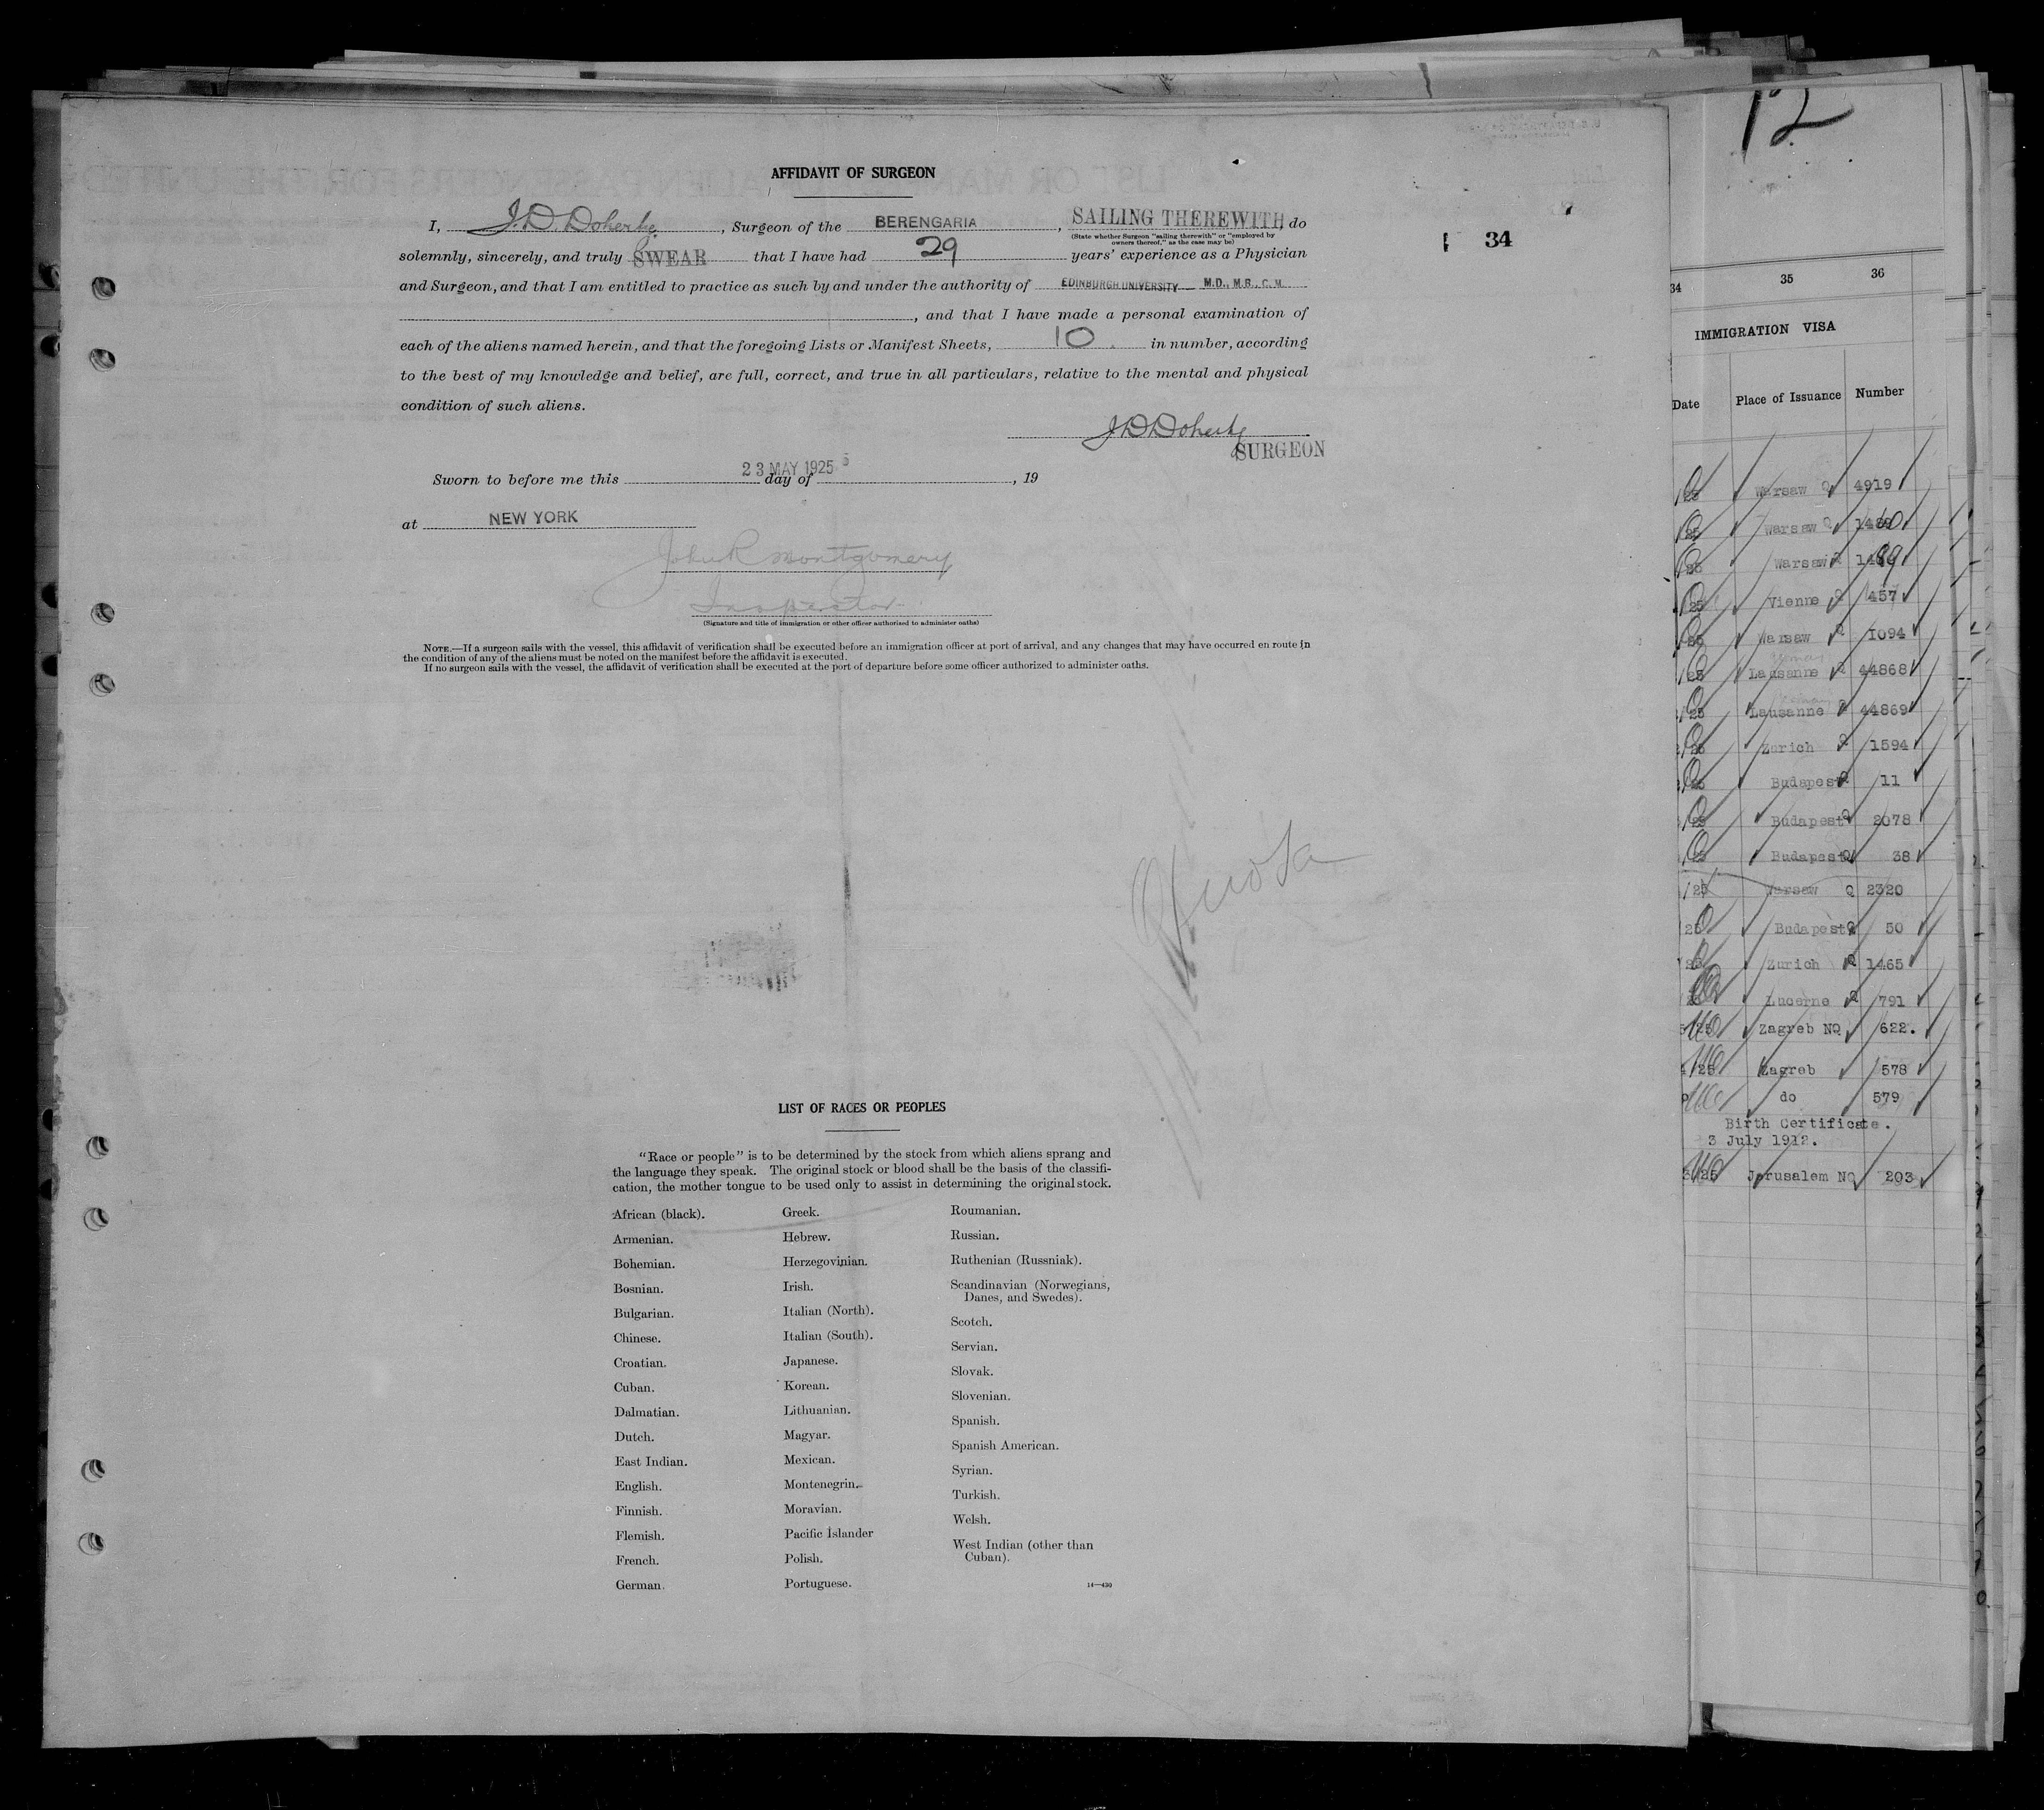 AFFIDAVIT OF SURGEON
I, J. D. Doherty, Surgeon of the BERENGARIA, SAILING THEREWITH, do
(State whether Surgeon "sailing therewith" or "employed by
owners thereof," as the case may be)
solemnly, sincerely, and truly SWEAR that I have had 29 years' experience as a Physician
and Surgeon, and that I am entitled to practice as such by and under the authority of EDINBURGH UNIVERSITY M.D., M.B., C.M.
, and that I have made a personal examination of
each of the aliens named herein, and that the foregoing Lists or Manifest Sheets, 10 in number, according
to the best of my knowledge and belief, are full, correct, and true in all particulars, relative to the mental and physical
condition of such aliens.
J D Doherty
SURGEON
Sworn to before me this 23 MAY 1925 day of , 19
at NEW YORK
John R Montgomery
Inspector
(Signature and title of immigration or other officer authorized to administer oaths)
NOTE.—If a surgeon sails with the vessel, this affidavit of verification shall be executed before an immigration officer at port of arrival, and any changes that may have occurred en route in
the condition of any of the aliens must be noted on the manifest before the affidavit is executed.
If no surgeon sails with the vessel, the affidavit of verification shall be executed at the port of departure before some officer authorized to administer oaths.
34
Quota
LIST OF RACES OR PEOPLES
"Race or people" is to be determined by the stock from which aliens sprang and
the language they speak. The original stock or blood shall be the basis of the classifi-
cation, the mother tongue to be used only to assist in determining the original stock.
African (black).
Armenian.
Bohemian.
Bosnian.
Bulgarian.
Chinese.
Croatian.
Cuban.
Dalmatian.
Dutch.
East Indian.
English.
Finnish.
Flemish.
French.
German.
Greek.
Hebrew.
Herzegovinian.
Irish.
Italian (North).
Italian (South).
Japanese.
Korean.
Lithuanian.
Magyar.
Mexican.
Montenegrin.
Moravian.
Pacific Islander
Polish.
Portuguese.
Roumanian.
Russian.
Ruthenian (Russniak).
Scandinavian (Norwegians,
Danes, and Swedes).
Scotch.
Servian.
Slovak.
Slovenian.
Spanish.
Spanish American.
Syrian.
Turkish.
Welsh.
West Indian (other than
Cuban).
14—430
12
34 35 36
IMMIGRATION VISA
Date Place of Issuance Number
25 Warsaw Q 4919
25 Warsaw Q
25 Warsaw Q
25 Vienne Q 457
25 Warsaw Q 1094
25 Lausanne Q 44868
25 Lausanne Q 44869
25 Zurich Q 1594
25 Budapest Q 11
25 Budapest Q 2078
25 Budapest Q 38
25 Warsaw Q 2320
25 Budapest Q 50
25 Zurich Q 1465
Lucerne Q 791
25 Zagreb NQ 622.
25 Zagreb 578
do 579
Birth Certificate.
3 July 1912.
25 Jerusalem NQ 203